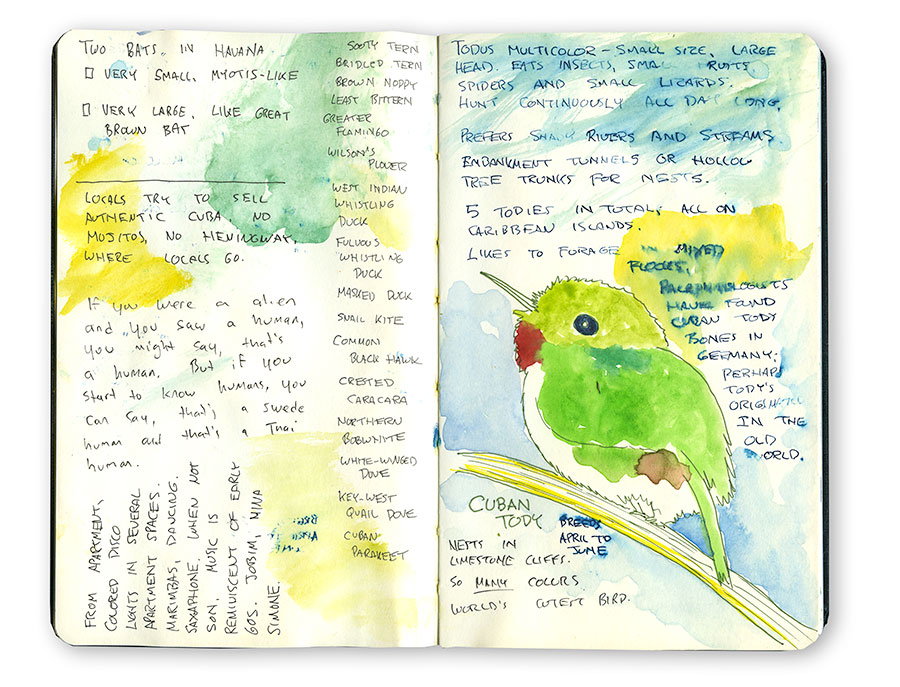 Two Bats in Havana
▯ Very small, Myotis-like
▯ Very large, like Great
Brown Bat
Locals try to sell
authentic Cuba. No
mojitos, no Hemingway,
where locals go.
If you were a alien
and you saw a human,
you might say, that's
a human. But if you
start to know humans, you
can say, that's a Swede
human and that's a Thai
human.
From apartment,
colored disco
lights in several
apartment spaces.
Marimbas, dancing.
Saxaphone, when not
son, music is
reminiscent of early
60s. Jobim, Nina
Simone.
Sooty Tern
Bridled Tern
Brown Noddy
Least Bittern
Greater
Flamingo
Wilson's
Plover
West Indian
Whistling
Duck
Fulvous
Whistling
Duck
Masked Duck
Snail Kite
Common
Black Hawk
Crested
Caracara
Northern
Bobwhite
White-winged
Dove
Key-West
Quail Dove
Cuban
Parakeet
Todus multicolor – small size, large
head. Eats insects, small fruits,
spiders and small lizards.
Hunt continuously all day long.
Prefers shady rivers and streams
Embankment tunnels or hollow
tree trunks for nests.
5 Todies in total, all on
Caribbean islands.
Likes to forage in mixed
flocks.
Paleontologists
have found
Cuban Tody
bones in
Germany;
perhaps
Tody's
originated
in the
Old
World.
Cuban
Tody
Breeds
April to
June
Nests in
limestone cliffs.
So many colors
World's cutest bird.